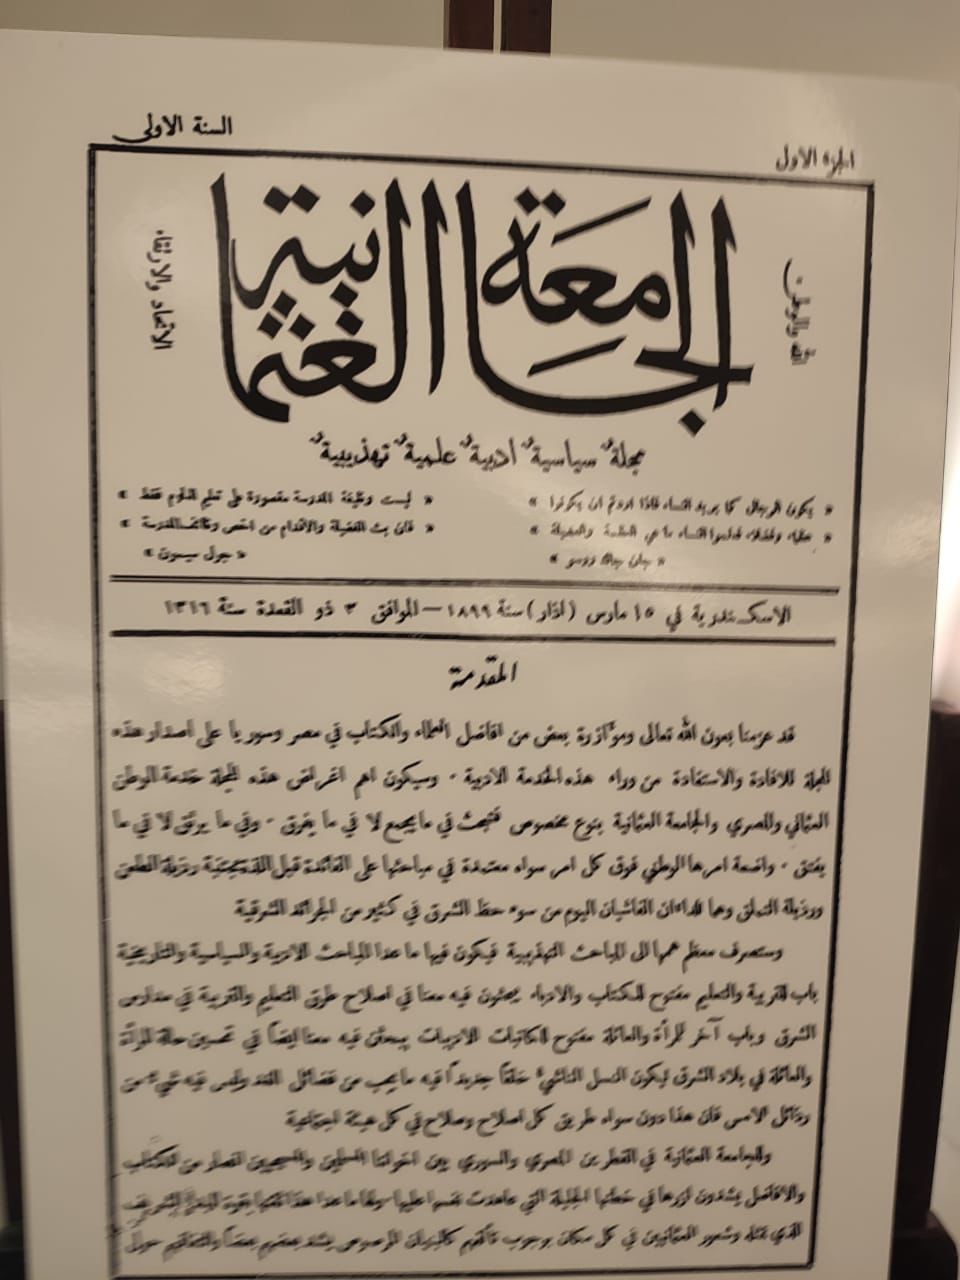 السنة الاولى
الجزء الاول
الجامعة العثمانية
الله والوطن
الاتحاد والارتقاء
مجلةٌ سياسيةٌ ادبيةٌ علميةٌ تهذيبيةٌ
« يكون الرجال كما يريد النساء فاذا اردتم ان يكونوا »
« عظماء وفضلاء فعلموا النساء ما هي العظمة والفضيلة »
« جان جاك روسو »
« ليست وظيفة المدرسة مقصورة على تعليم العلوم فقط »
« فان بث الفضيلة والاقدام من اخص وظائف المدرسة »
« جول سيمون »
الاسكندرية في ١٥ مارس (اذار) سنة ١٨٩٩ — الموافق ٣ ذو القعدة سنة ١٣١٦
المقدمة
قد عزمنا بعون الله تعالى ومؤازرة بعض من افاضل العلماء والكتاب في مصر وسوريا على اصدار هذه
المجلة للافادة والاستفادة من وراء هذه الخدمة الادبية . وسيكون اهم اغراض هذه المجلة خدمة الوطن
العثماني والمصري والجامعة العثمانية بنوع مخصوص فتبحث في ما يجمع لا في ما يفرق . وفي ما يرتق لا في ما
يفتق . واضعة امرها الوطني فوق كل امر سواه معتمدة في مباحثها على الفائدة قبل اللذة مجتنبة رذيلة الطعن
ورذيلة التملق وهما الداءان الفاشيان اليوم من سوء حظ الشرق في كثير من الجرائد الشرقية
وستصرف معظم همها الى المباحث التهذيبية فيكون فيها ما عدا المباحث الادبية والسياسية والتاريخية
باب للتربية والتعليم مفتوح للكتاب والادباء يبحثون فيه معنا في اصلاح طرق التعليم والتربية في مدارس
الشرق وباب آخر للمرأة والعائلة مفتوح للكاتبات الاديبات يبحثن فيه معنا ايضاً في تحسين حالة المرأة
والعائلة في بلاد الشرق ليكون النسل الناشئ خلقاً جديداً فيه ما يجب من فضائل الغد وليس فيه شيء من
رذائل الامس فان هذا دون سواه طريق كل اصلاح وصلاح في كل هيئة اجتماعية
وللجامعة العثمانية في القطرين المصري والسوري بين اخواننا المسلمين والمسيحيين انصار من الكتاب
والافاضل يشدون ازرها في خطتها الجليلة التي عاهدت نفسها عليها ما عدا هذا
الذي تمثله وشعور العثمانيين في كل مكان بوجوب تآلفهم كالبنيان المرصوص يشد بعضهم بعضاً والتفافهم حول